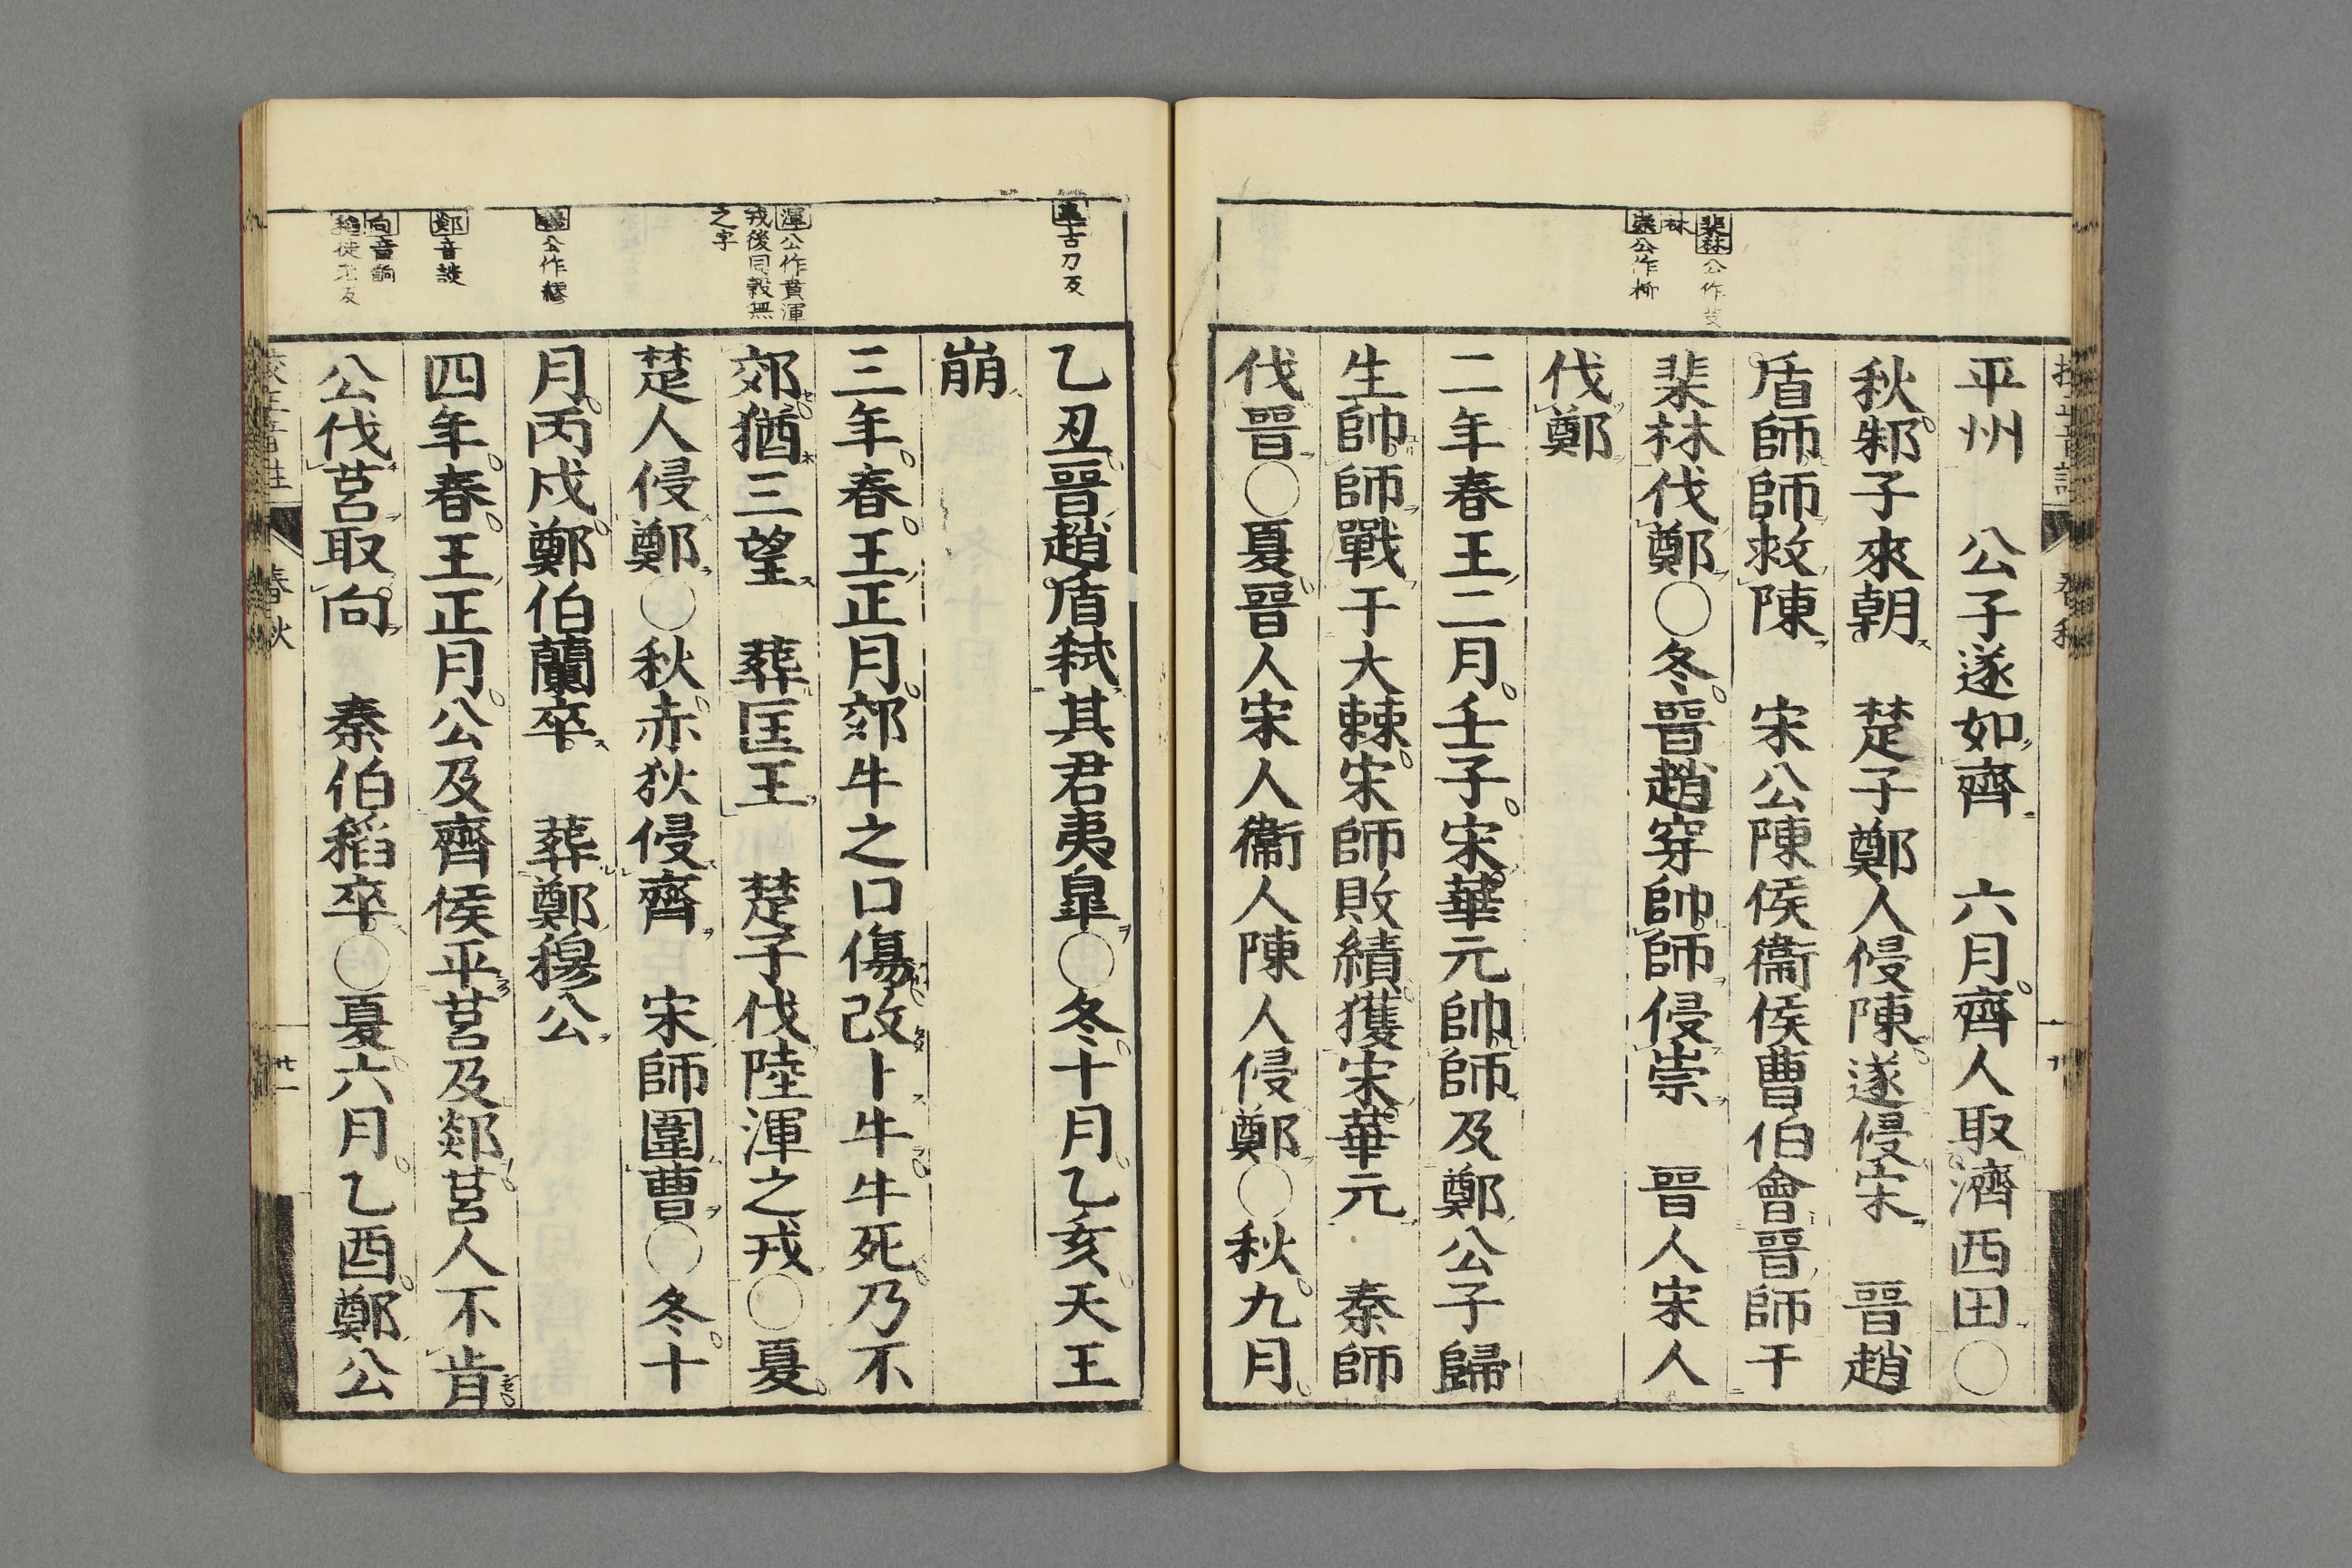 斐林公作斐
林
崇公作柳
平州　公子遂如齊　六月齊人取濟西田○
秋邾子來朝　楚子鄭人侵陳遂侵宋　晉趙
盾帥師救陳　宋公陳侯衞侯曹伯會晉師于
棐林伐鄭○冬晉趙穿帥師侵崇　晉人宋人
伐鄭
二年春王二月壬子宋華元帥師及鄭公子歸
生帥師戰于大棘宋師敗績獲宋華元　秦師
伐晉○夏晉人宋人衞人陳人侵鄭○秋九月
皐古刀反
渾公作賁渾
戎後同穀無
之字
公作繆
郯音談
向音餉
乙丑晉趙盾弑其君夷皐○冬十月乙亥天王
崩
三年春王正月郊牛之口傷改卜牛牛死乃不
郊猶三望　葬匡王　楚子伐陸渾之戎○夏
楚人侵鄭○秋赤狄侵齊　宋師圍曹○冬十
月丙戌鄭伯蘭卒　葬鄭穆公
四年春王正月公及齊侯平莒及郯莒人不肯
公伐莒取向　秦伯稻卒○夏六月乙酉鄭公
春秋
廿一